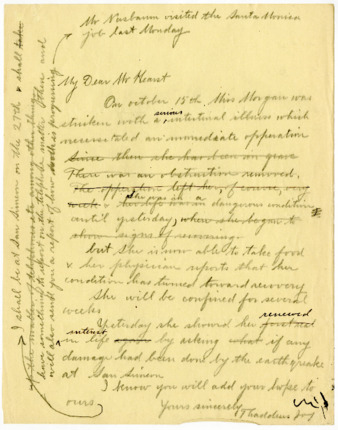 Mr Nusbaum visited the Santa Monica
job last Monday
My Dear Mr Hearst
On october 15th, Miss Morgan was
stricken with a serious intestinal illness which
necessitated an immediate opperation
Since then she has been in grave
There was an obstruction removed.
The opperation left her, of course, very
weak & she was in a dangerous condition
until yesterday, when she began to
show signs of
but she is now able to take food
& her physician reports that her
condition has turned toward recovery
She will be confined for several
weeks
Yesterday she showed her renewed
interest in life again by asking what if any
damage had been done by the earthquake
at San Simeon
I know you will add your hopes to
ours
Yours sincerely
Thaddeus Joy
I shall be at San Simeon on the 27th & shall take
up the matter of telephones etc among other things
have something to report on the tapestry matter then and
will also send you a report of how work is progressing